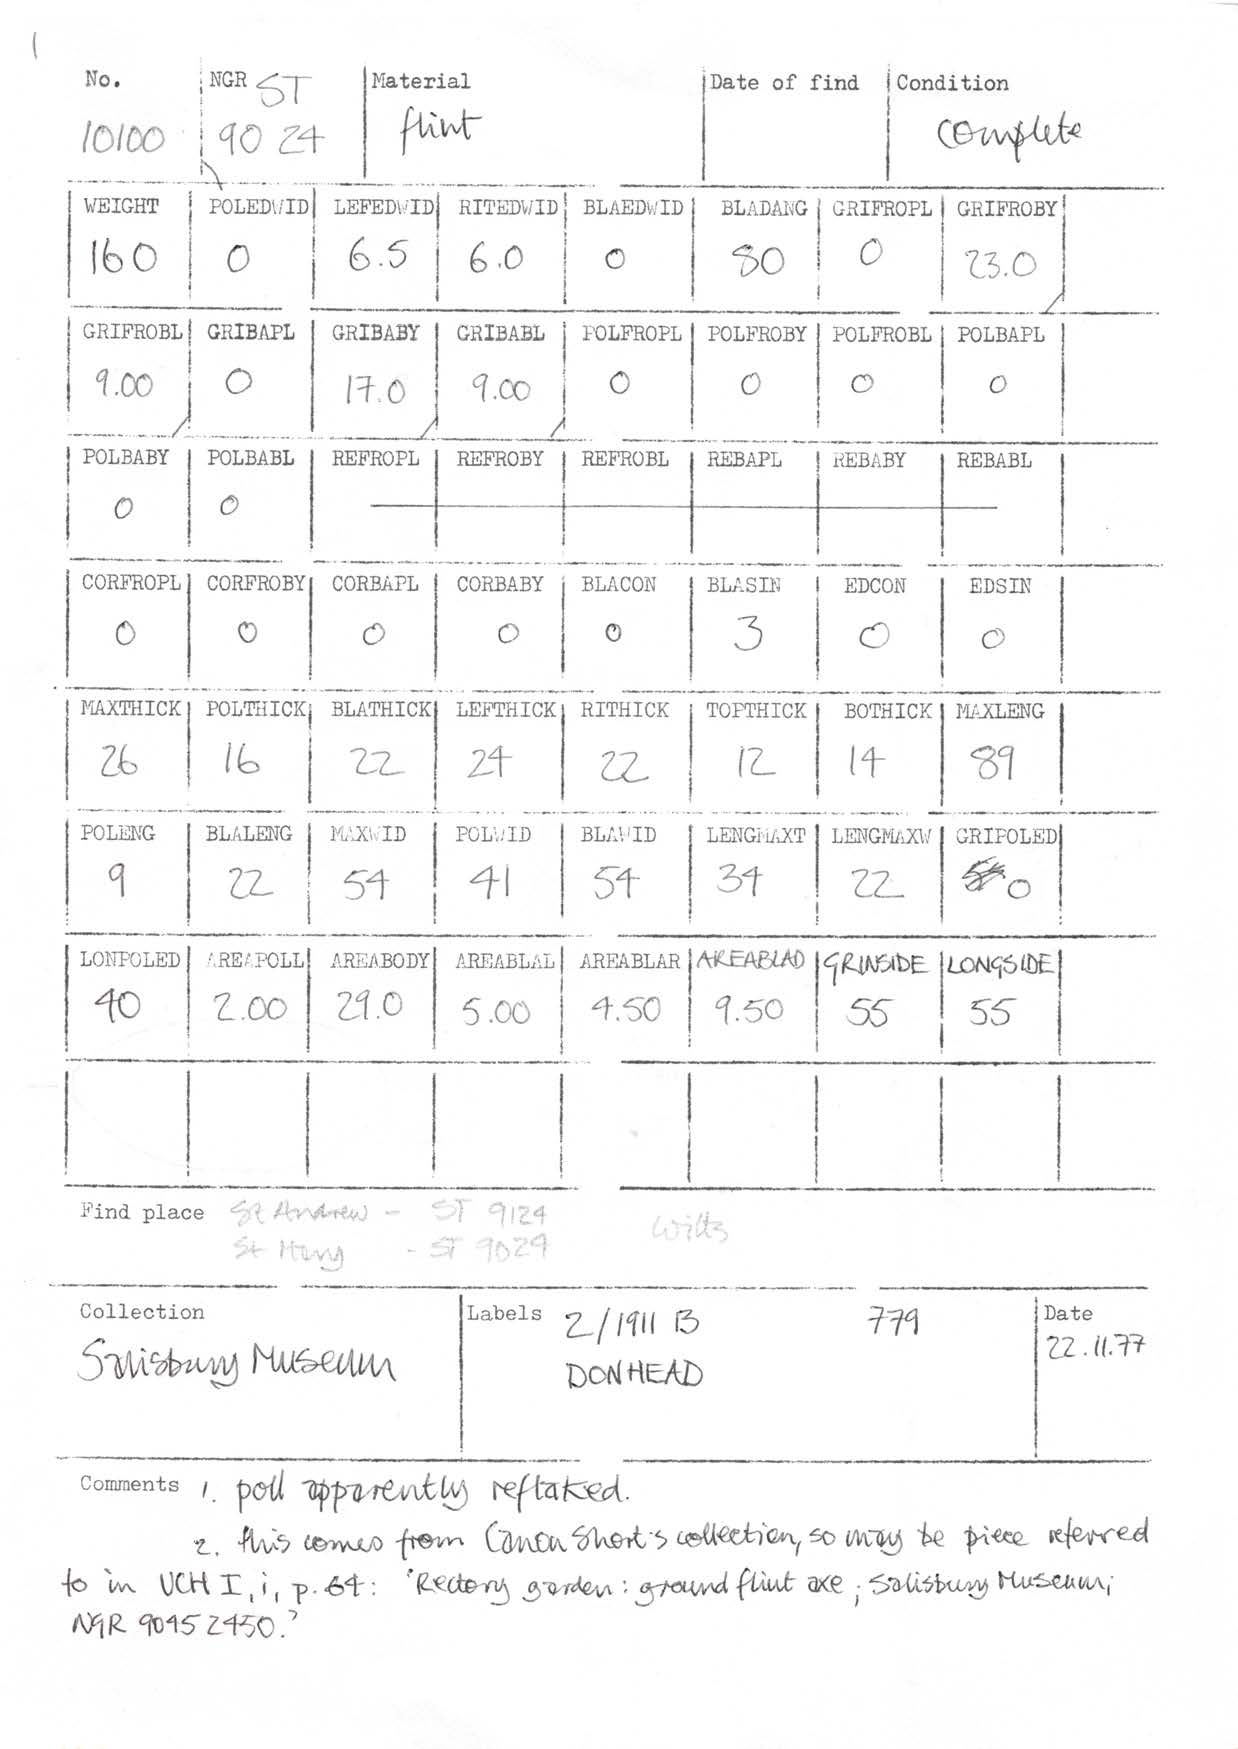 1
No. NGR ST Material Date of find Condition
10100 90 24 flint complete
WEIGHT POLEDWID LEFEDWID RITEDWID BLAEDWID BLADANG GRIFROPL GRIFROBY
160 0 6.5 6.0 0 80 0 23.0
GRIFROBL GRIBAPL GRIBABY GRIBABL POLFROPL POLFROBY POLFROBL POLBAPL
9.00 0 17.0 9.00 0 0 0 0
POLBABY POLBABL REFROPL REFROBY REFROBL REBAPL REBABY REBABL
0 0
CORFROPL CORFROBY CORBAPL CORBABY BLACON BLASIN EDCON EDSIN
0 0 0 0 0 3 0 0
MAXTHICK POLTHICK BLATHICK LEFTHICK RITHICK TOPTHICK BOTHICK MAXLENG
26 16 22 24 22 12 14 89
POLENG BLALENG MAXWID POLWID BLAWID LENGMAXT LENGMAXW GRIPOLED
9 22 54 41 54 34 22 0
LONPOLED AREAPOLL AREABODY AREABLAL AREABLAR AREABLAD GRINSIDE LONGSIDE
40 2.00 29.0 5.00 4.50 9.50 55 55
Find place St Andrew - ST 9124 Wilts
St Mary - ST 9024
Collection Labels 2/1911 B 779 Date
Salisbury Museum DONHEAD 22.11.77
Comments 1. poll apparently reflaked.
2. this comes from Canon Short's collection, so may be piece referred
to in VCH I, i, p. 64: 'Rectory garden: ground flint axe; Salisbury Museum;
NGR 9045 2450.'